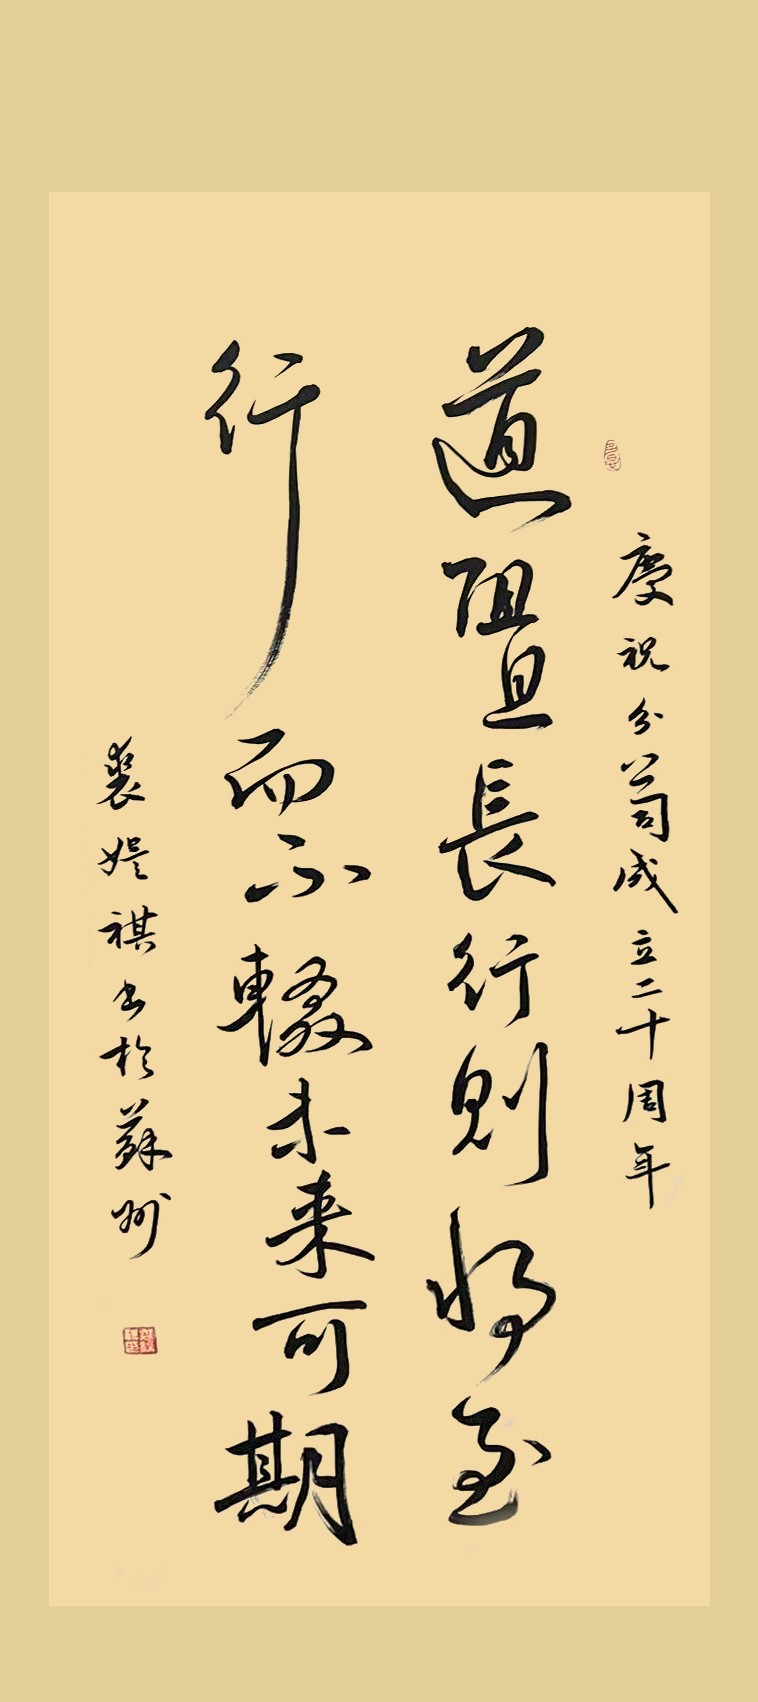 慶祝分公司成立二十周年
道阻且長行則將至
行而不輟未來可期
裘祺书於蘇州